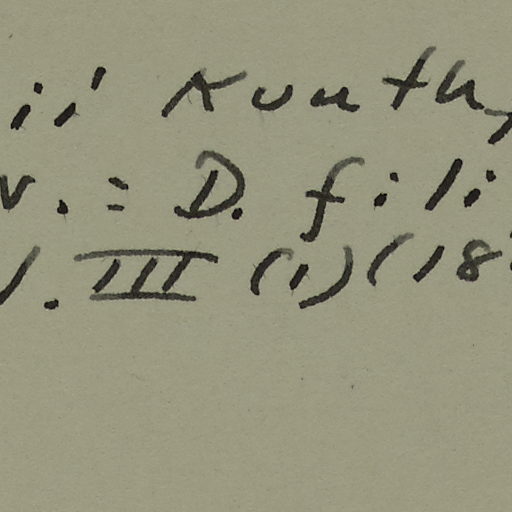 ii Kunth,
v. = D. fili
. III (1)(18